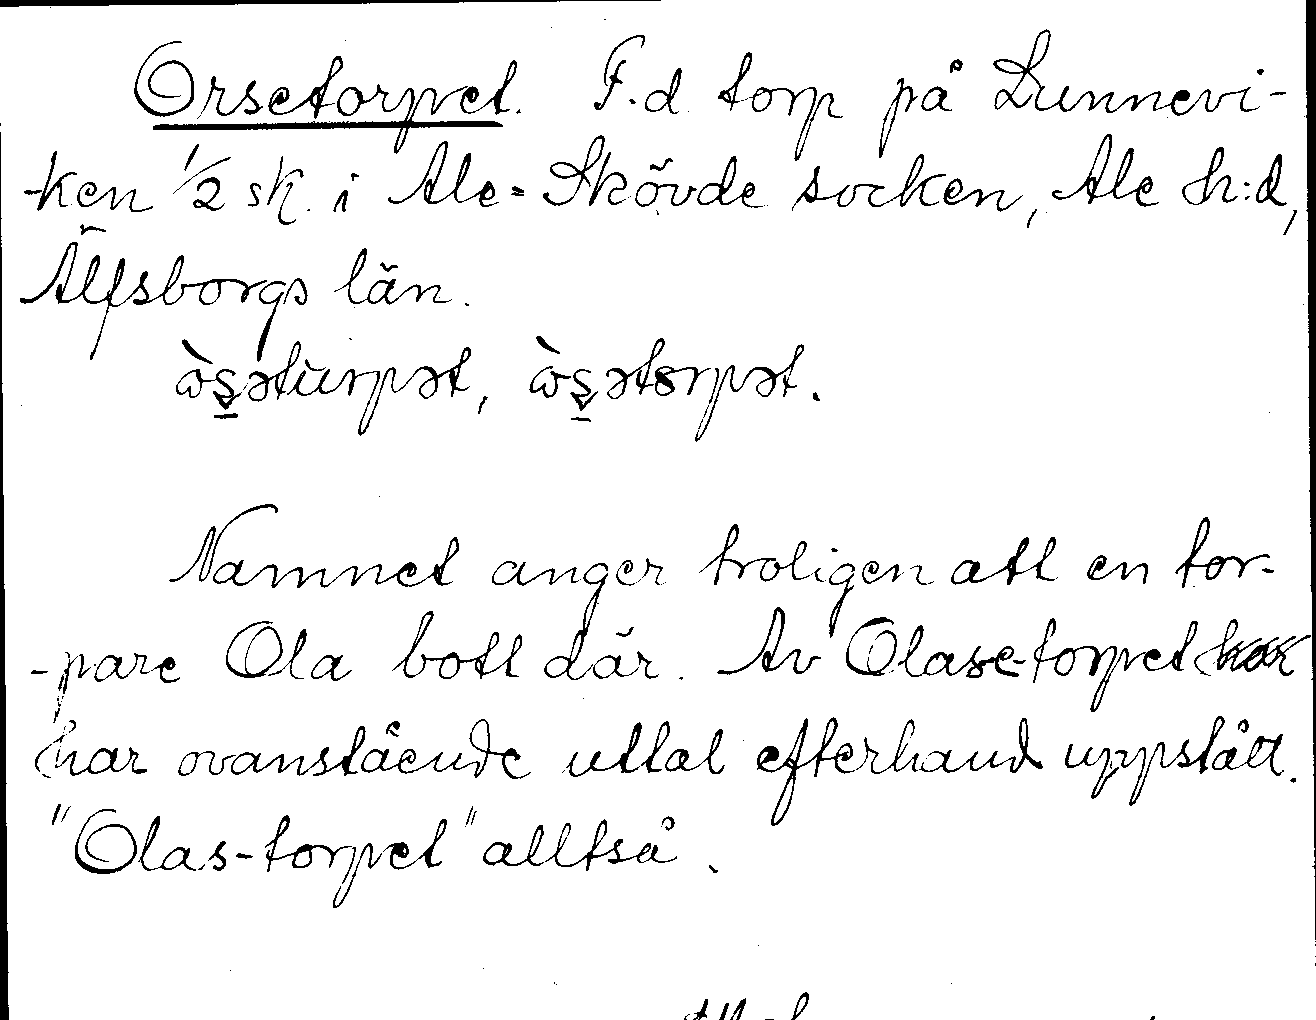 Orsetorpet. F.d torp på Lunnevi-
-ken 1/2 sk. i Ale-Skövde socken, Ale h:d,
Älfsborgs län.
ὼʂətùrpət, ὼʂətɤrpət.
Namnet anger troligen att en tor-
-pare Ola bott där. Av Olase-torpet
har ovanstående uttal efterhand uppstått.
"Olas-torpet" alltså.